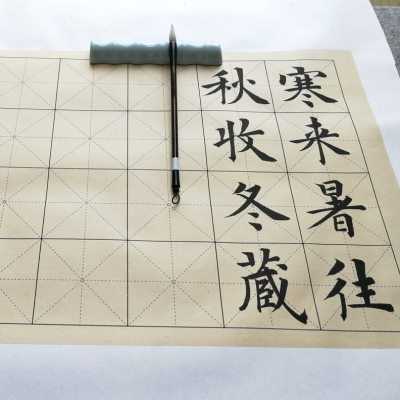 寒来暑往
秋收冬蔵